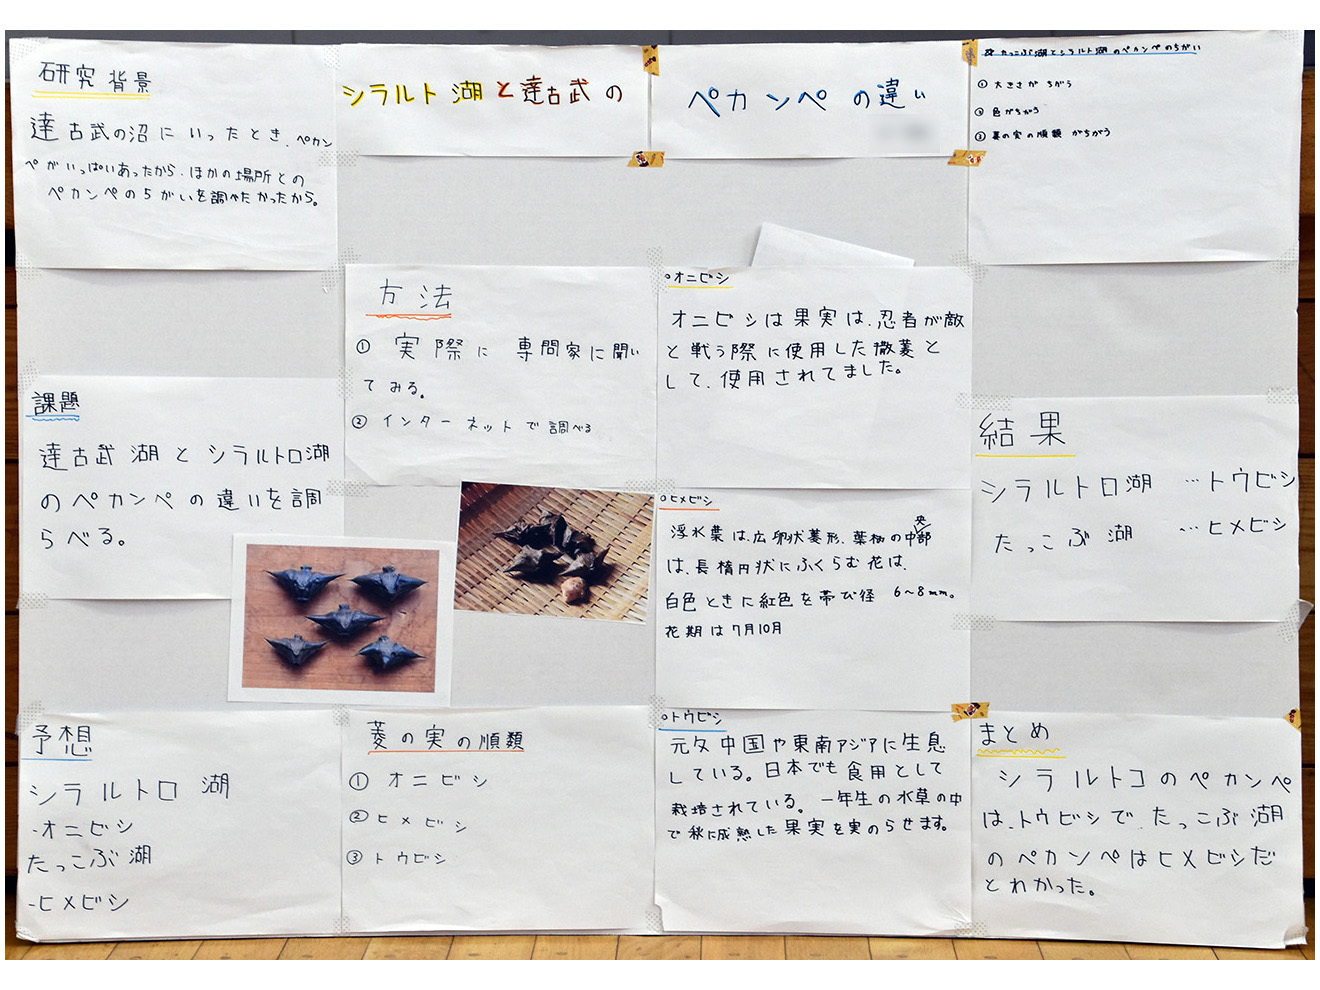 シラルト湖と達古武の
ペカンペの違い
研究背景
達古武の沼にいったとき、ペカン
ペがいっぱいあったから、ほかの場所との
ペカンペのちがいを調べたかったから。
課題
達古武湖とシラルトロ湖
のペカンペの違いを調
らべる。
予想
シラルトロ湖
-オニビシ
たっこぶ湖
-ヒメビシ
方法
① 実際に専問家に聞い
てみる。
② インターネットで調べる
菱の実の順類
① オニビシ
② ヒメビシ
③ トウビシ
○オニビシ
オニビシは果実は、忍者が敵
と戦う際に使用した撒菱と
して、使用されてました。
○ヒメビシ
浮水葉は広卵状菱形、葉柄の中央部
は、長楕円状にふくらむ花は、
白色ときに紅色を帯び径 6〜8mm。
花期は7月10月
○トウビシ
元々中国や東南アジアに生息
している。日本でも食用として
栽培されている。一年生の水草の中
で秋に成熟した果実を実のらせます。
☆たっこぶ湖とシラルトロ湖のペカンペのちがい
① 大きさがちがう
② 色がちがう
③ 菱の実の順類がちがう
結果
シラルトロ湖 …トウビシ
たっこぶ湖 …ヒメビシ
まとめ
シラルトコのペカンペ
は、トウビシで、たっこぶ湖
のペカンペはヒメビシだ
とわかった。